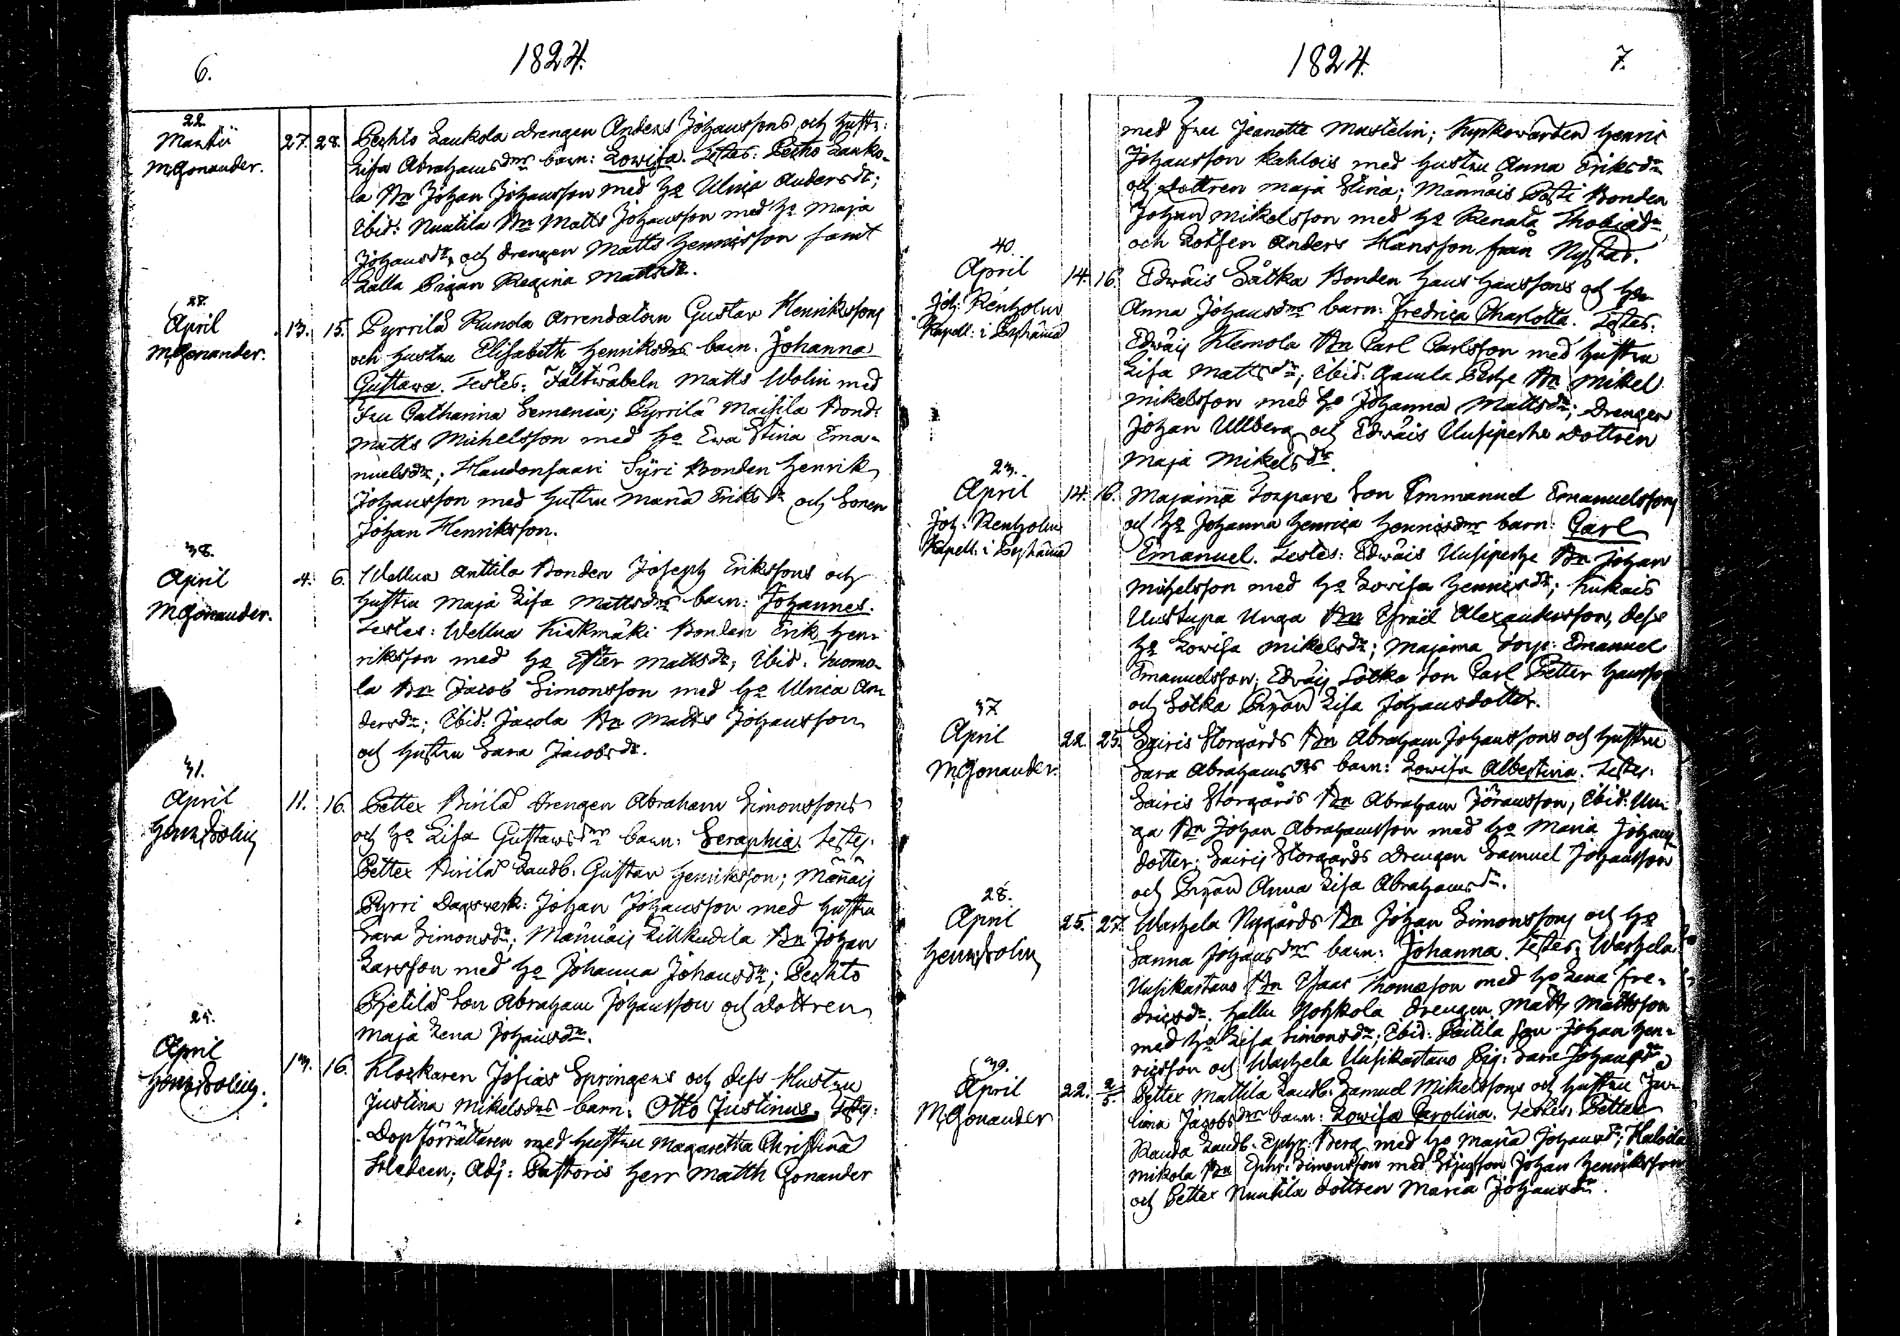 6.
1824.
22.
Martii
M. Gonander.
27. 28. Pechto Laukola drengen Anders Johanssons och hustr:
Lisa Abrahams drs barn: Lovisa. Testes: Pechto Lauko-
la Bn Johan Johansson med ho Ulrica Anders dr;
Ibid: Nuutila Bn Matts Johansson med ho Maja
Johans dr, och drengen Matts Henricsson samt
Lalla Pigan Regina Matts dr.
28.
April
M. Gonander.
13. 15. Pyrrilä Runola Arrendatorn Gustav Henrikssons
och hustru Elisabeth Henriks drs barn. Johanna
Gustava. Testes: Fältwäbeln Matts Wolin med
Fru Catharina Semenia; Pyrrilä Maisila Bond:
Matts Michelsson med ho Ewa Stina Ema-
nuels dr; Haudonsaari Syri Bonden Henrik
Johansson med hustru Maria Eriks dr och Sonen
Johan Henriksson.
38.
April
M. Gonander.
4. 6. Wellua Anttila Bonden Joseph Erikssons och
hustru Maja Lisa Matts drs barn: Johannes.
Testes: Wellua Kiikmäki Bonden Erik Hen-
riksson med ho Ester Matts dr; Ibid. Tuomo-
la Bn Jacob Simonsson med ho Ulrica An-
ders dr; Ibid: Jacola Bn Matts Johansson
och hustru Sara Jacobs dr.
31.
April
Henr. Bolin
11. 16. Pettex Pirilä drengen Abraham Simonssons
och ho Lisa Gustavs drs barn: Seraphia. Testes.
Pettex Pirilä Landb: Gustav Henriksson; Männäis
Pyrri Dagsverk: Johan Johansson med hustru
Sara Simons dr; Männäis Killkudila Bn Johan
Larsson med ho Johanna Johans dr; Pechto
Pietilä Son Abraham Johansson och Dottren
Maja Lena Johans dr.
25.
April
Henr. Bolin.
13. 16. Klockaren Josias Springers och dess Hustru
Justina Mikels drs barn: Otto Justinus. Testes:
Dopförrättaren med hustru Margaretha Christina
Heleen; Adj: Pastoris Herr Matth Gonander
1824.
7.
med fru Jeanette Mastelin; Kyrkowärden Henric
Johansson Kahlois med hustru Anna Eriks dr
och Dottren Maja Stina; Männäis Pasti Bonden
Johan Mikelsson med ho Renata Thobias dr
och Lotsen Anders Hansson från Nystad.
40.
April
Joh: Renholm
Kapell: i Pyhäma
14. 16. Edwäis Sätka Bonden Hans Hanssons och ho
Anna Johans drs barn: Fredrica Charlotta. Testes:
Edwäis Klemola Bn Carl Carlsson med hustru
Lisa Matts dr; Ibid. Gamla Perhe Bn Mikel
Mikelsson med ho Johanna Matts dr; Drengen
Johan Ullberg och Edwäis Uusiperhe Dottren
Maja Mikels dr.
23.
April
Joh: Renholm
Kapell: i Pyhäma
14. 16. Majama Torpare Son Emmanuel Emanuelssons
och ho Johanna Henrica Henrics drs barn: Carl
Emanuel. Testes: Edwäis Uusiperhe Bn Johan
Michelsson med ho Lovisa Henrics dr; Kukais
Uustupa Unga Bn Israël Alexandersson, dess
ho Lovisa Mikels dr; Majama Torp: Emanuel
Emanuelsson; Edwäis Sätka Son Carl Petter Hansson
och Sätka Pigan Lisa Johansdotter.
37
April
M. Gonander.
22. 25. Sairis Storgårds Bn Abraham Johanssons och hustru
Sara Abrahams drs barn: Lovisa Albertina. Testes:
Sairis Storgårds Bn Abraham Jöransson, Ibid: Un-
ga Bn Johan Abrahamsson med ho Maria Johans
dotter; Sairis Storgårds drengen Samuel Johansson
och Pigan Anna Lisa Abrahams dr.
28.
April
Henr. Bolin
25. 27. Warhela Nygårds Bn Johan Simonssons och ho
Sanna Johans drs barn: Johanna. Testes: Warhela
Uusikartano Bn Isaac Thomasson med ho Lena Fre-
drics dr; Hallu Nohkola drengen Matts Mattsson
med ho Lisa Simons dr; Ibid: Peitila son Johan Hen-
ricsson och Warhela Uusikartano Pig: Sara Johans dr
39.
April
M. Gonander
22. 2/5. Pettex Mattila Landb: Samuel Mikelssons och hustru Ju-
liana Jacobs drs barn: Lovisa Carolina. Testes: Pettex
Rauda Landb. Ephr: Berg med ho Maria Johans dr; Halvila
Mikola Bn Ephr: Simonsson med Styfson Johan Henriksson
och Pettex Nuutila dottren Maria Johans dr.